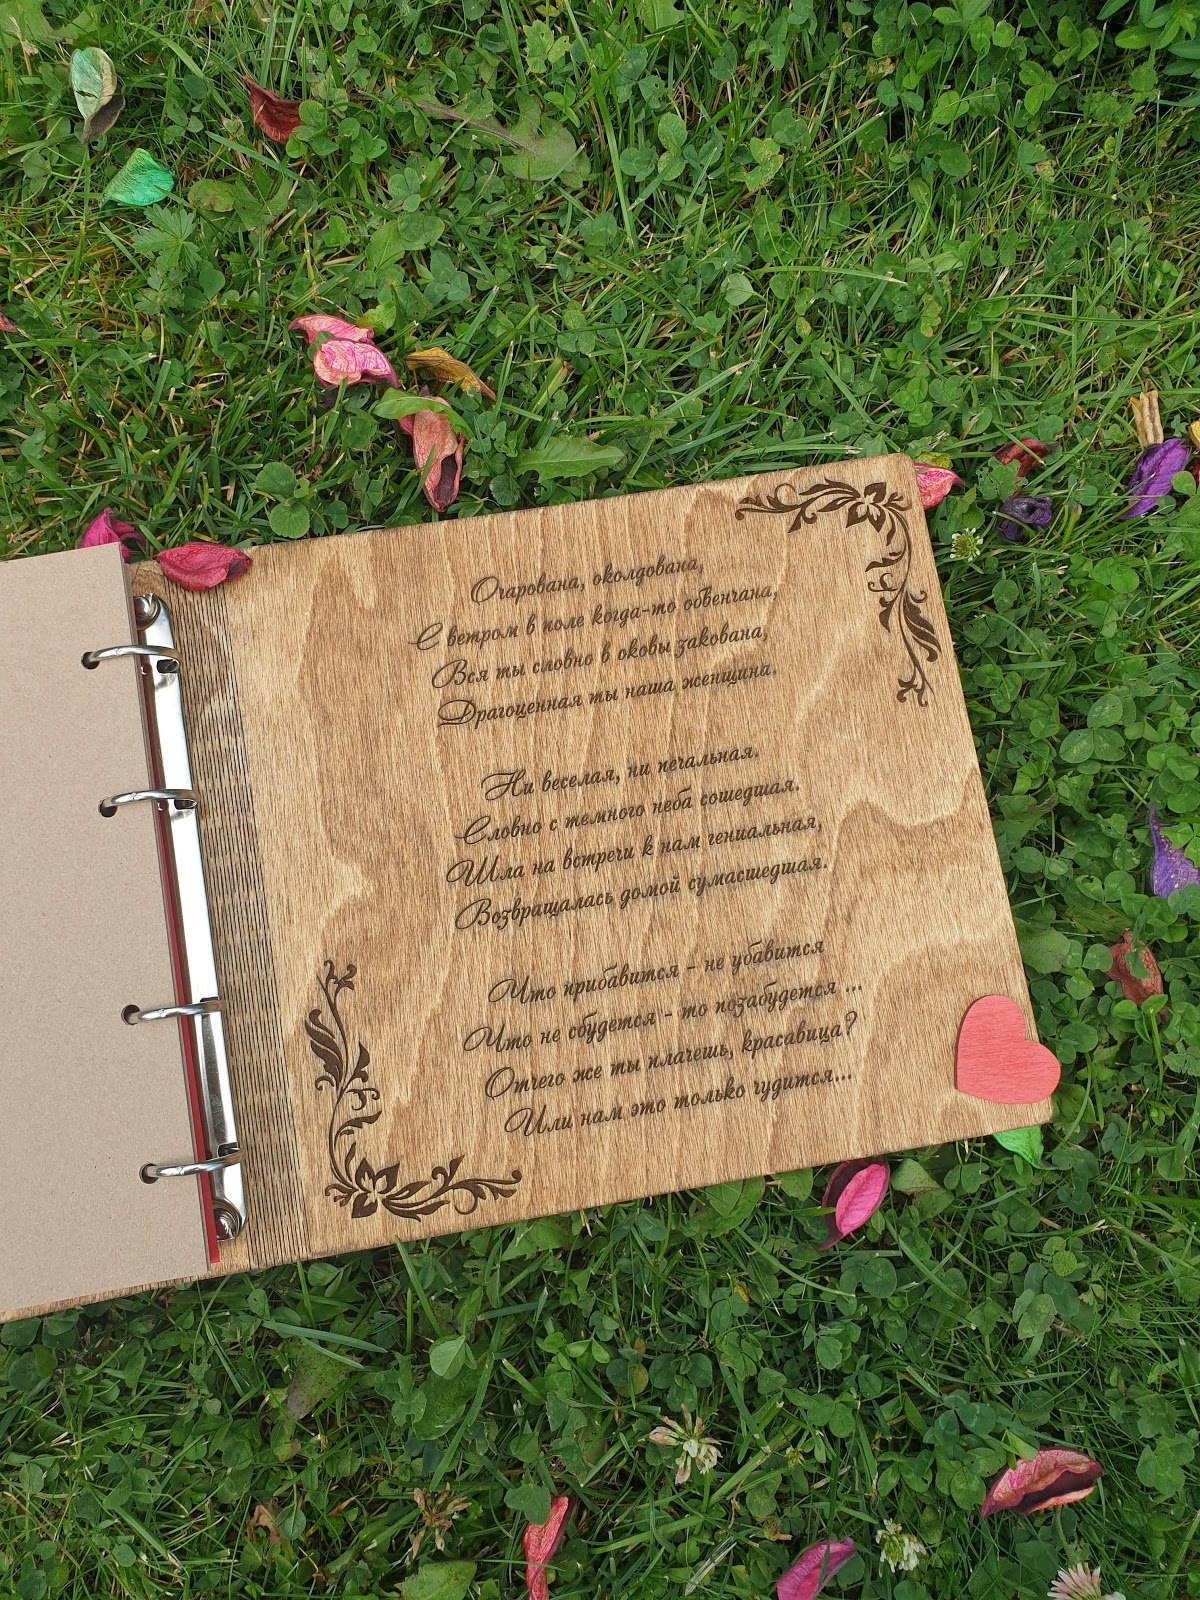 Очарована, околдована,
С ветром в поле когда-то обвенчана,
Вся ты словно в оковы закована,
Драгоценная ты наша женщина.
Ни веселая, ни печальная.
Словно с темного неба сошедшая.
Шла на встречи к нам гениальная,
Возвращалась домой сумасшедшая.
Что прибавится - не убавится
Что не сбудется - то позабудется ...
Отчего же ты плачешь, красавица?
Или нам это только чудится...